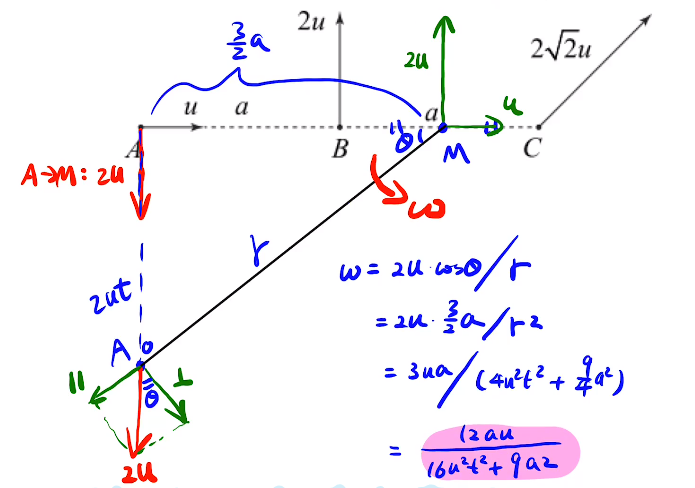 3/2 a
2u
2u
2√2u
u
a
a
u
A
B
θ
M
C
A→M: 2u
ω
r
2ut
ω = 2u·cosθ/r
= 2u·3/2 a/r²
= 3ua/(4u²t² + 9/4 a²)
= 12au/(16u²t² + 9a²)
A
∥
θ
⊥
2u